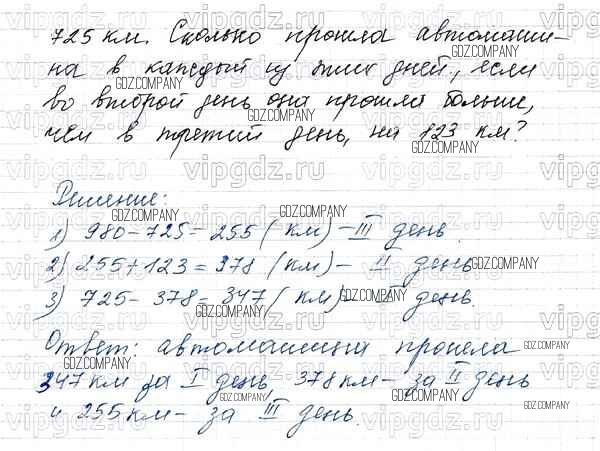 725 км. Сколько прошла автомаши-
на в каждый из этих дней, если
во второй день она прошла больше,
чем в третий день, на 123 км?
Решение:
1) 980-725= 255 (км)-III день.
2) 255+123=378 (км)- II день
3) 725-378=347 (км)- I день.
Ответ: автомашина прошла
347 км за I день, 378 км- за II день
и 255 км- за III день.